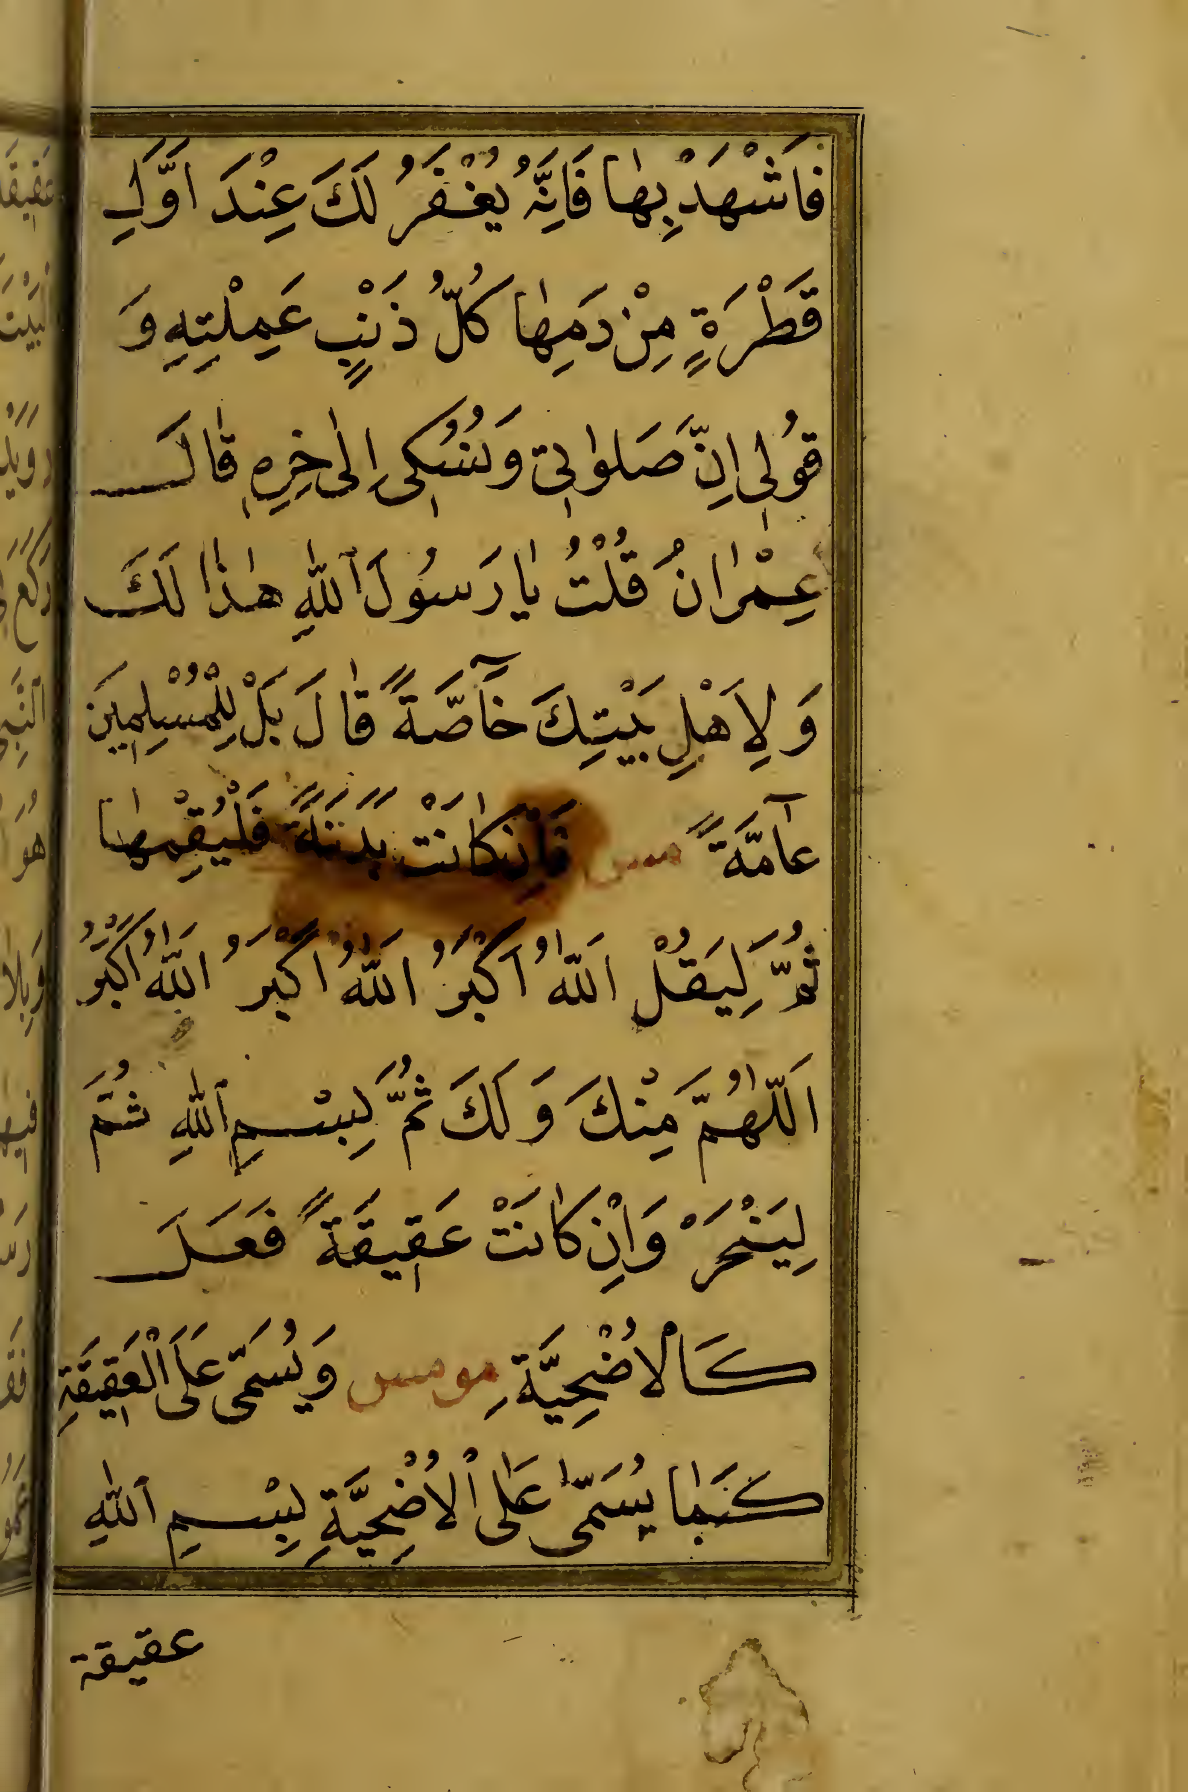 فَاشْهَدْ بِهٰا فَاِنَّهُ يُغْفَرُ لَكَ عِنْدَ اَوَّلِ
قَطْرَةٍ مِنْ دَمِهٰا كُلُّ ذَنْبٍ عَمِلْتِهِ وَ
قُولٖى اِنَّ صَلوٰتٖى وَنُسُكٖى اِلٰى خِرِهٖ قٰالَ
عِمْرٰانُ قُلْتُ يٰا رَسُولَ اللّٰهِ هٰذٰا لَكَ
وَ لِاَهْلِ بَيْتِكَ خَآصَّةً قٰالَ بَلْ لِلْمُسْلِمٖينَ
عٰآمَّةً مس فَاِنْ كٰانَتْ بَدَنَةً فَلْيُقِمْهٰا
ثُمَّ لِيَقُلْ اَللّٰهُ اَكْبَرُ اَللّٰهُ اَكْبَرُ اَللّٰهُ اَكْبَرُ
اَللّٰهُمَّ مِنْكَ وَ لَكَ ثُمَّ لِبِسْمِ اللّٰهِ ثُمَّ
لِيَنْحَرْ وَاِنْ كٰانَتْ عَقٖيقَةً فَعَلَ
كَالْاُضْحِيَّةِ مومس وَيُسَمّٰى عَلَى الْعَقٖيقَةِ
كَمٰا يُسَمّٰى عَلَى الْاُضْحِيَّةِ بِسْمِ اللّٰهِ
عقيقة